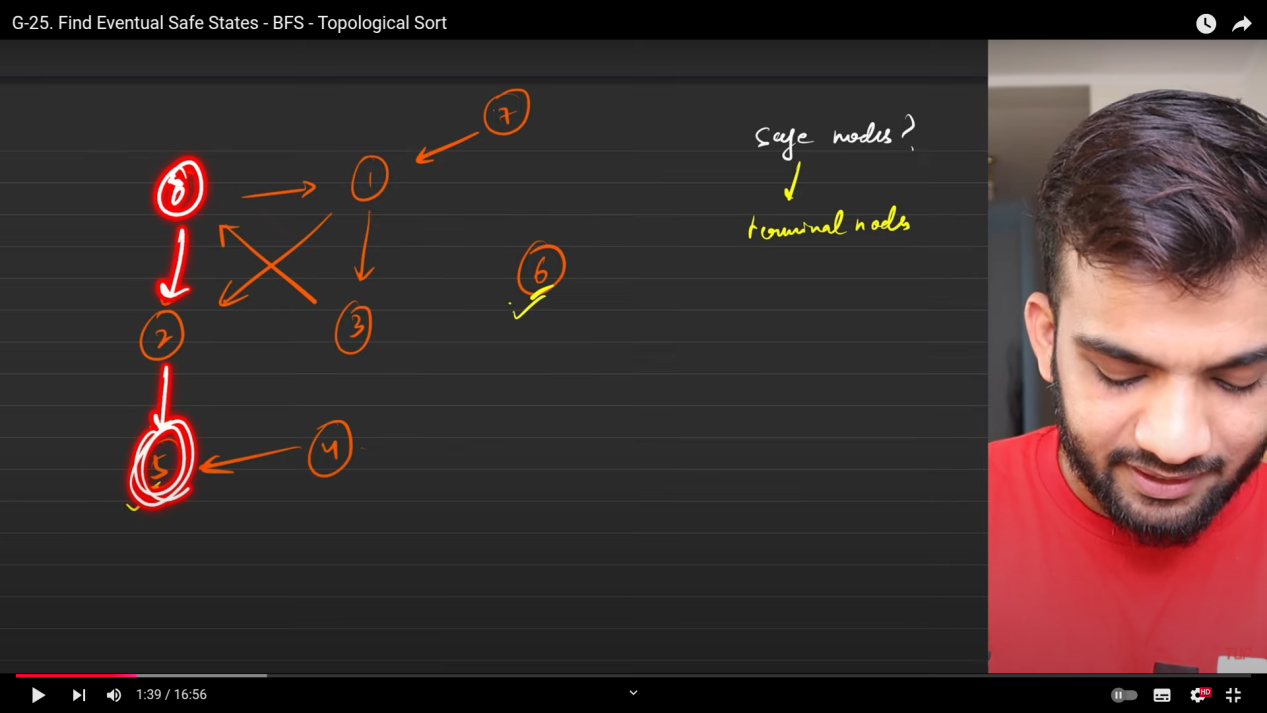 G-25. Find Eventual Safe States - BFS - Topological Sort
7
safe nodes?
8
1
terminal nodes
6
2
3
5
4
1:39 / 16:56
HD